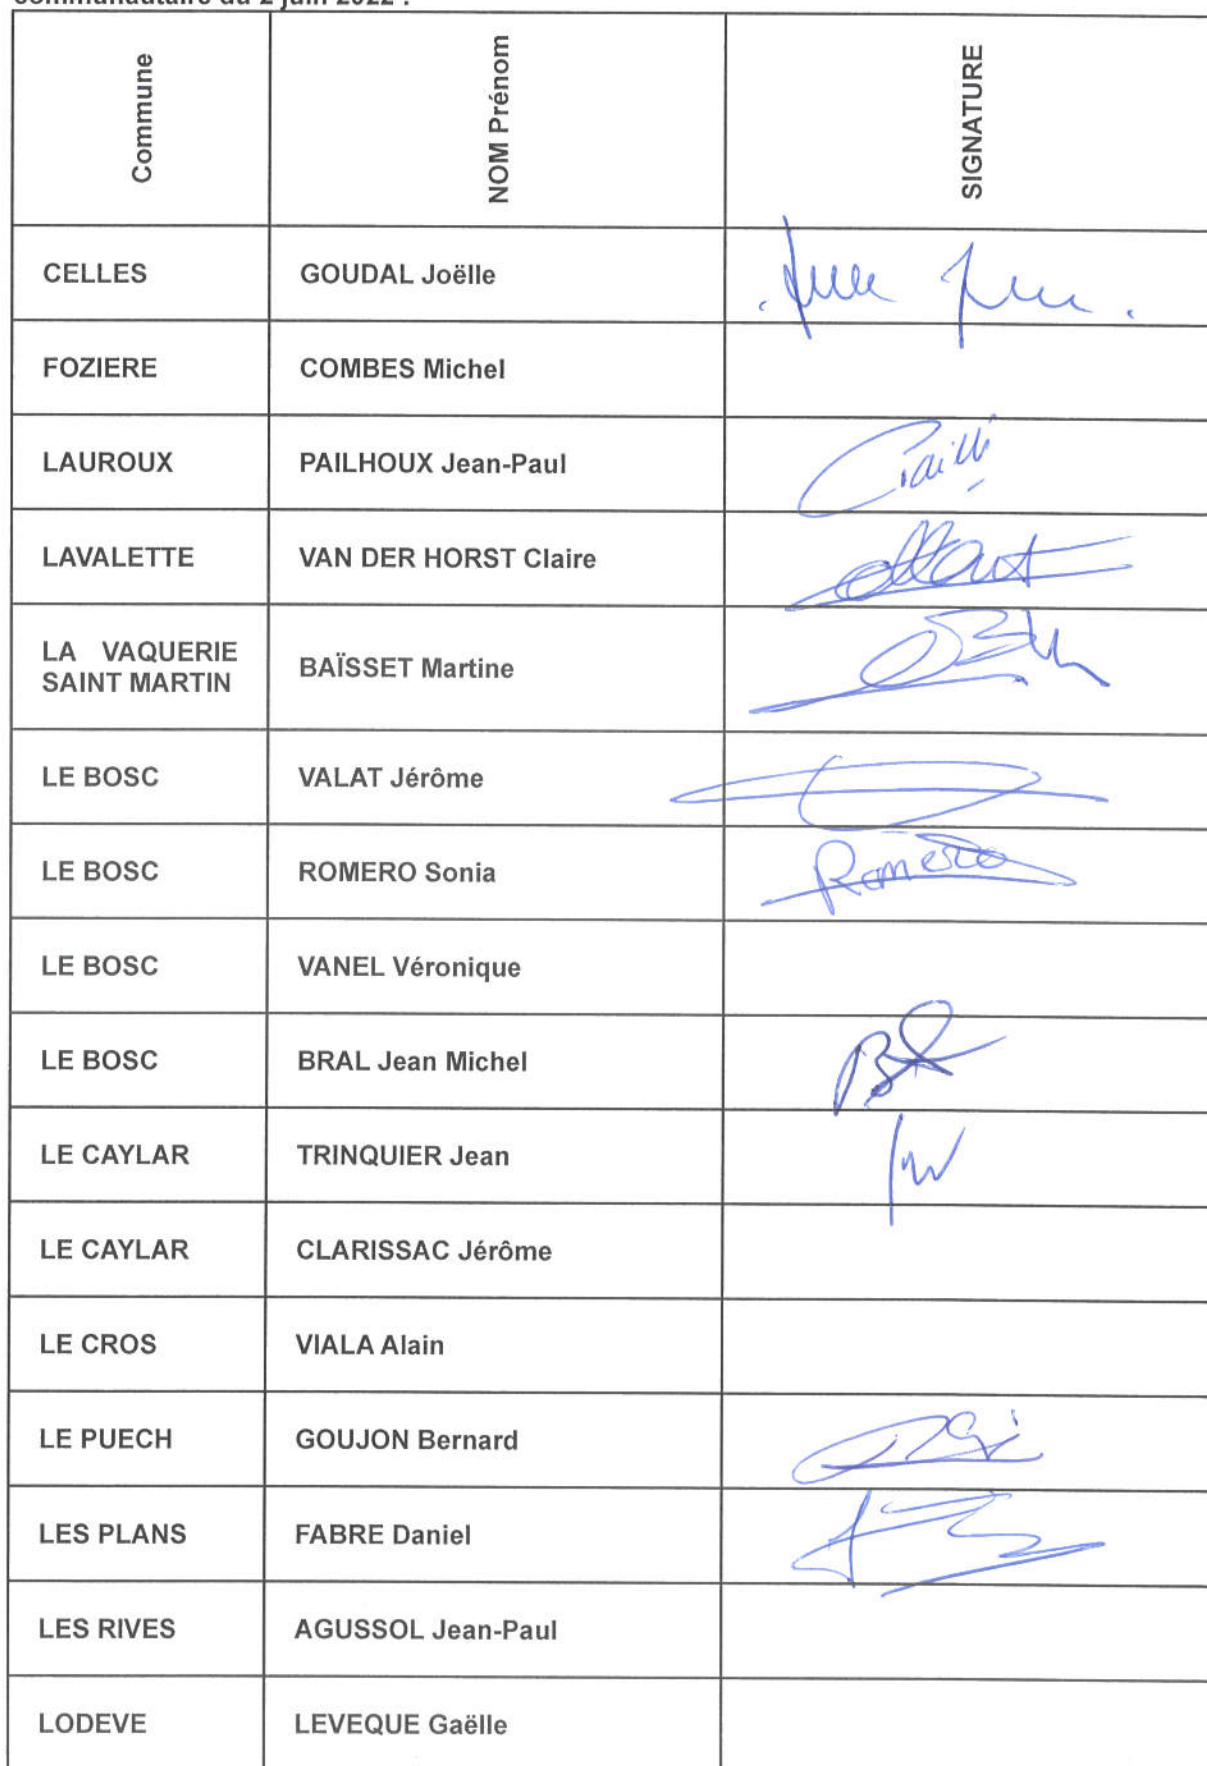 communautaire du 2 juin 2022 :
Commune
NOM Prénom
SIGNATURE
CELLES
GOUDAL Joëlle
FOZIERE
COMBES Michel
LAUROUX
PAILHOUX Jean-Paul
LAVALETTE
VAN DER HORST Claire
LA VAQUERIE
SAINT MARTIN
BAÏSSET Martine
LE BOSC
VALAT Jérôme
LE BOSC
ROMERO Sonia
Romero
LE BOSC
VANEL Véronique
LE BOSC
BRAL Jean Michel
LE CAYLAR
TRINQUIER Jean
LE CAYLAR
CLARISSAC Jérôme
LE CROS
VIALA Alain
LE PUECH
GOUJON Bernard
LES PLANS
FABRE Daniel
LES RIVES
AGUSSOL Jean-Paul
LODEVE
LEVEQUE Gaëlle